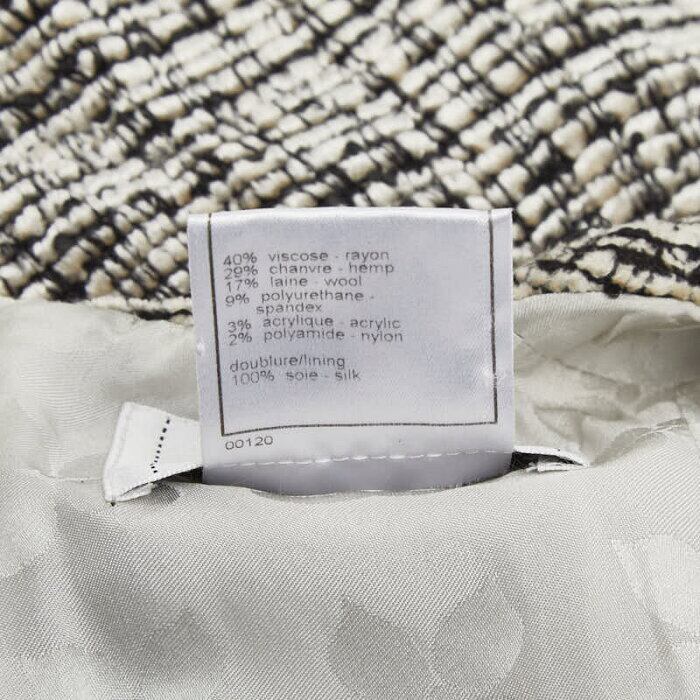 40% viscose - rayon
29% chanvre - hemp
17% laine - wool
9% polyurethane -
spandex
3% acrylique - acrylic
2% polyamide - nylon
doublure/lining
100% soie - silk
00120